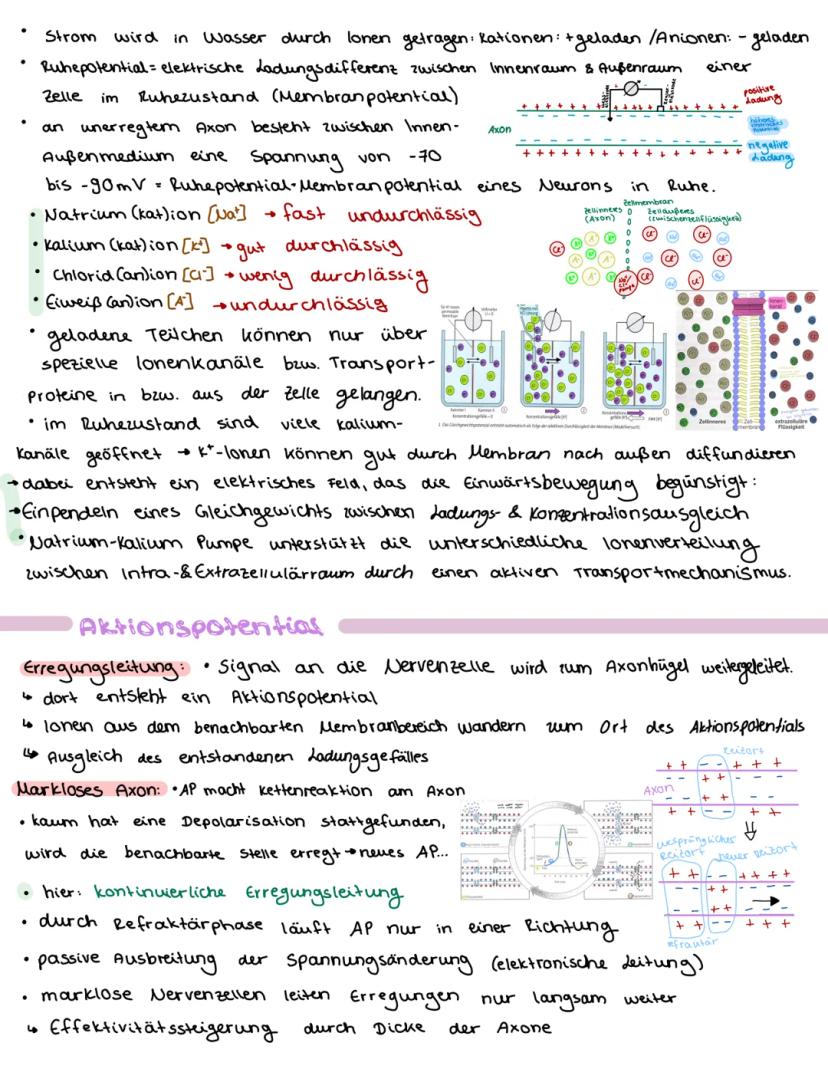 • Strom wird in Wasser durch Ionen getragen: Kationen: + geladen / Anionen: - geladen
• Ruhepotential = elektrische Ladungsdifferenz zwischen Innenraum & Außenraum einer
Zelle im Ruhezustand (Membranpotential)
positive
Ladung
• an unerregtem Axon besteht zwischen Innen-
Axon
Außenmedium eine Spannung von -70
negative
Ladung
bis -90mV = Ruhepotential-Membranpotential eines Neurons in Ruhe.
• Natrium (kat)ion [Na+] → fast undurchlässig
Zellmembran
Zellinneres
(Axon)
Zelläußeres
(Zwischenzellflüssigkeit)
• Kalium (kat)ion [K+] → gut durchlässig
• Chlorid (an)ion [Cl-] → wenig durchlässig
• Eiweiß (an)ion [A-] → undurchlässig
• geladene Teilchen können nur über
spezielle Ionenkanäle bzw. Transport-
proteine in bzw. aus der Zelle gelangen.
Zellinneres
Zell-
membran
extrazelluläre
Flüssigkeit
• im Ruhezustand sind viele Kalium-
Kanäle geöffnet → K+-Ionen können gut durch Membran nach außen diffundieren
→ dabei entsteht ein elektrisches Feld, das die Einwärtsbewegung begünstigt:
→ Einpendeln eines Gleichgewichts zwischen Ladungs- & Konzentrationsausgleich
• Natrium-Kalium Pumpe unterstützt die unterschiedliche Ionenverteilung
zwischen Intra-& Extrazellulärraum durch einen aktiven Transportmechanismus.
Aktionspotential
Erregungsleitung: • Signal an die Nervenzelle wird zum Axonhügel weitergeleitet.
↳ dort entsteht ein Aktionspotential
↳ Ionen aus dem benachbarten Membranbereich wandern zum Ort des Aktionspotentials
↳ Ausgleich des entstandenen Ladungsgefälles
Reizort
Markloses Axon: • AP macht Kettenreaktion am Axon
Axon
• kaum hat eine Depolarisation stattgefunden,
wird die benachbarte Stelle erregt → neues AP...
ursprünglicher
Reizort
neuer Reizort
• hier: kontinuierliche Erregungsleitung
• durch Refraktärphase läuft AP nur in einer Richtung
refraktär
• passive Ausbreitung der Spannungsänderung (elektronische Leitung)
• marklose Nervenzellen leiten Erregungen nur langsam weiter
↳ Effektivitätssteigerung durch Dicke der Axone